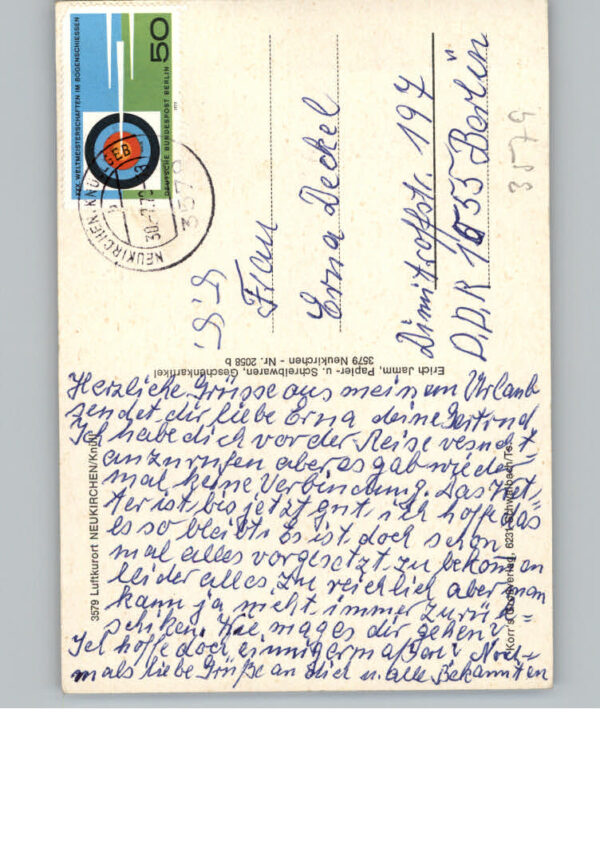 XXX. WELTMEISTERSCHAFTEN IM BOGENSCHIESSEN
50
DEUTSCHE BUNDESPOST BERLIN
NEUKIRCHEN-KNÜLLGEB
3579
Frau
Erna Deckel
Dimitroffstr. 197
DDR 1055 Berlin
3579
Erich Jamm, Papier- u. Schreibwaren, Geschenkartikel
3579 Neukirchen - Nr. 2058 b
3579 Luftkurort NEUKIRCHEN/Knüll
Korr's Großverlag, 6231 Schwalbach/Ts.
Herzliche Grüsse aus meinem Urlaub
sendet dir liebe Erna deine Gertrud
Ich habe dich vor der Reise versucht
anzurufen aber es gab wieder-
mal keine Verbindung. Das Wet-
ter ist bis jetzt gut, ich hoffe das
es so bleibt. Es ist doch schön
mal alles vorgesetzt zu bekommen
leider alles zu reichlich aber man
kann ja nicht immer zurück-
schiken. Wie mag es dir gehen?
Ich hoffe doch einnigermaßen? Noch-
mals liebe Grüße an dich u. alle Bekannten